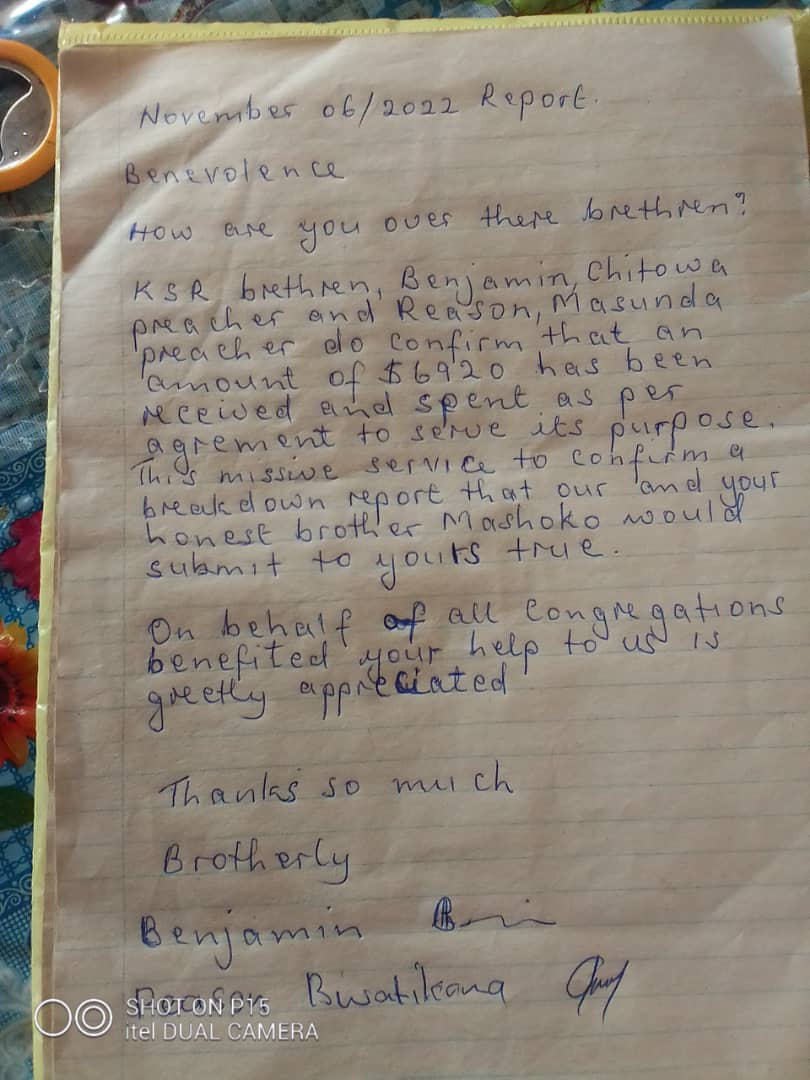 November 06/2022 Report.
Benevolence
How are you over there brethren?
KSR brethren, Benjamin, Chitowa
preacher and Reason, Masunda
preacher do confirm that an
amount of $6920 has been
received and spent as per
agrement to serve its purpose.
This missive service to confirm a
breakdown report that our and your
honest brother Mashoko would
submit to yours true.
On behalf of all congregations
benefited your help to us is
greetly appreciated
Thanks so much
Brotherly
Benjamin
Reason Bwatikona
SHOT ON P15
itel DUAL CAMERA